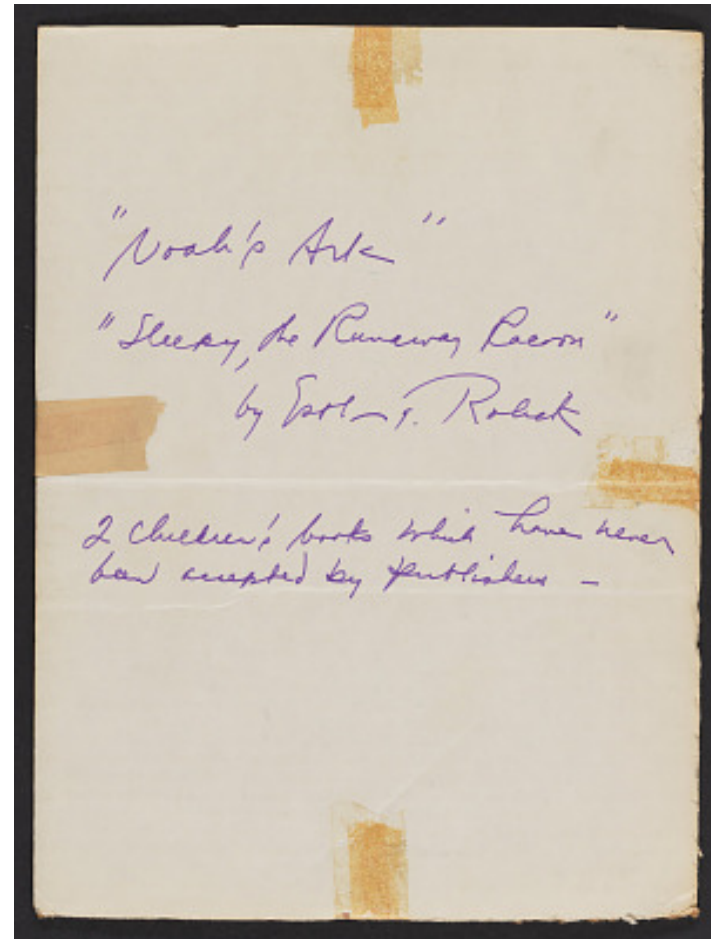 "Noah's Ark"
"Sleepy, the Runaway Racoon"
by T. Robak
2 children's books which have never
been accepted by publishers –